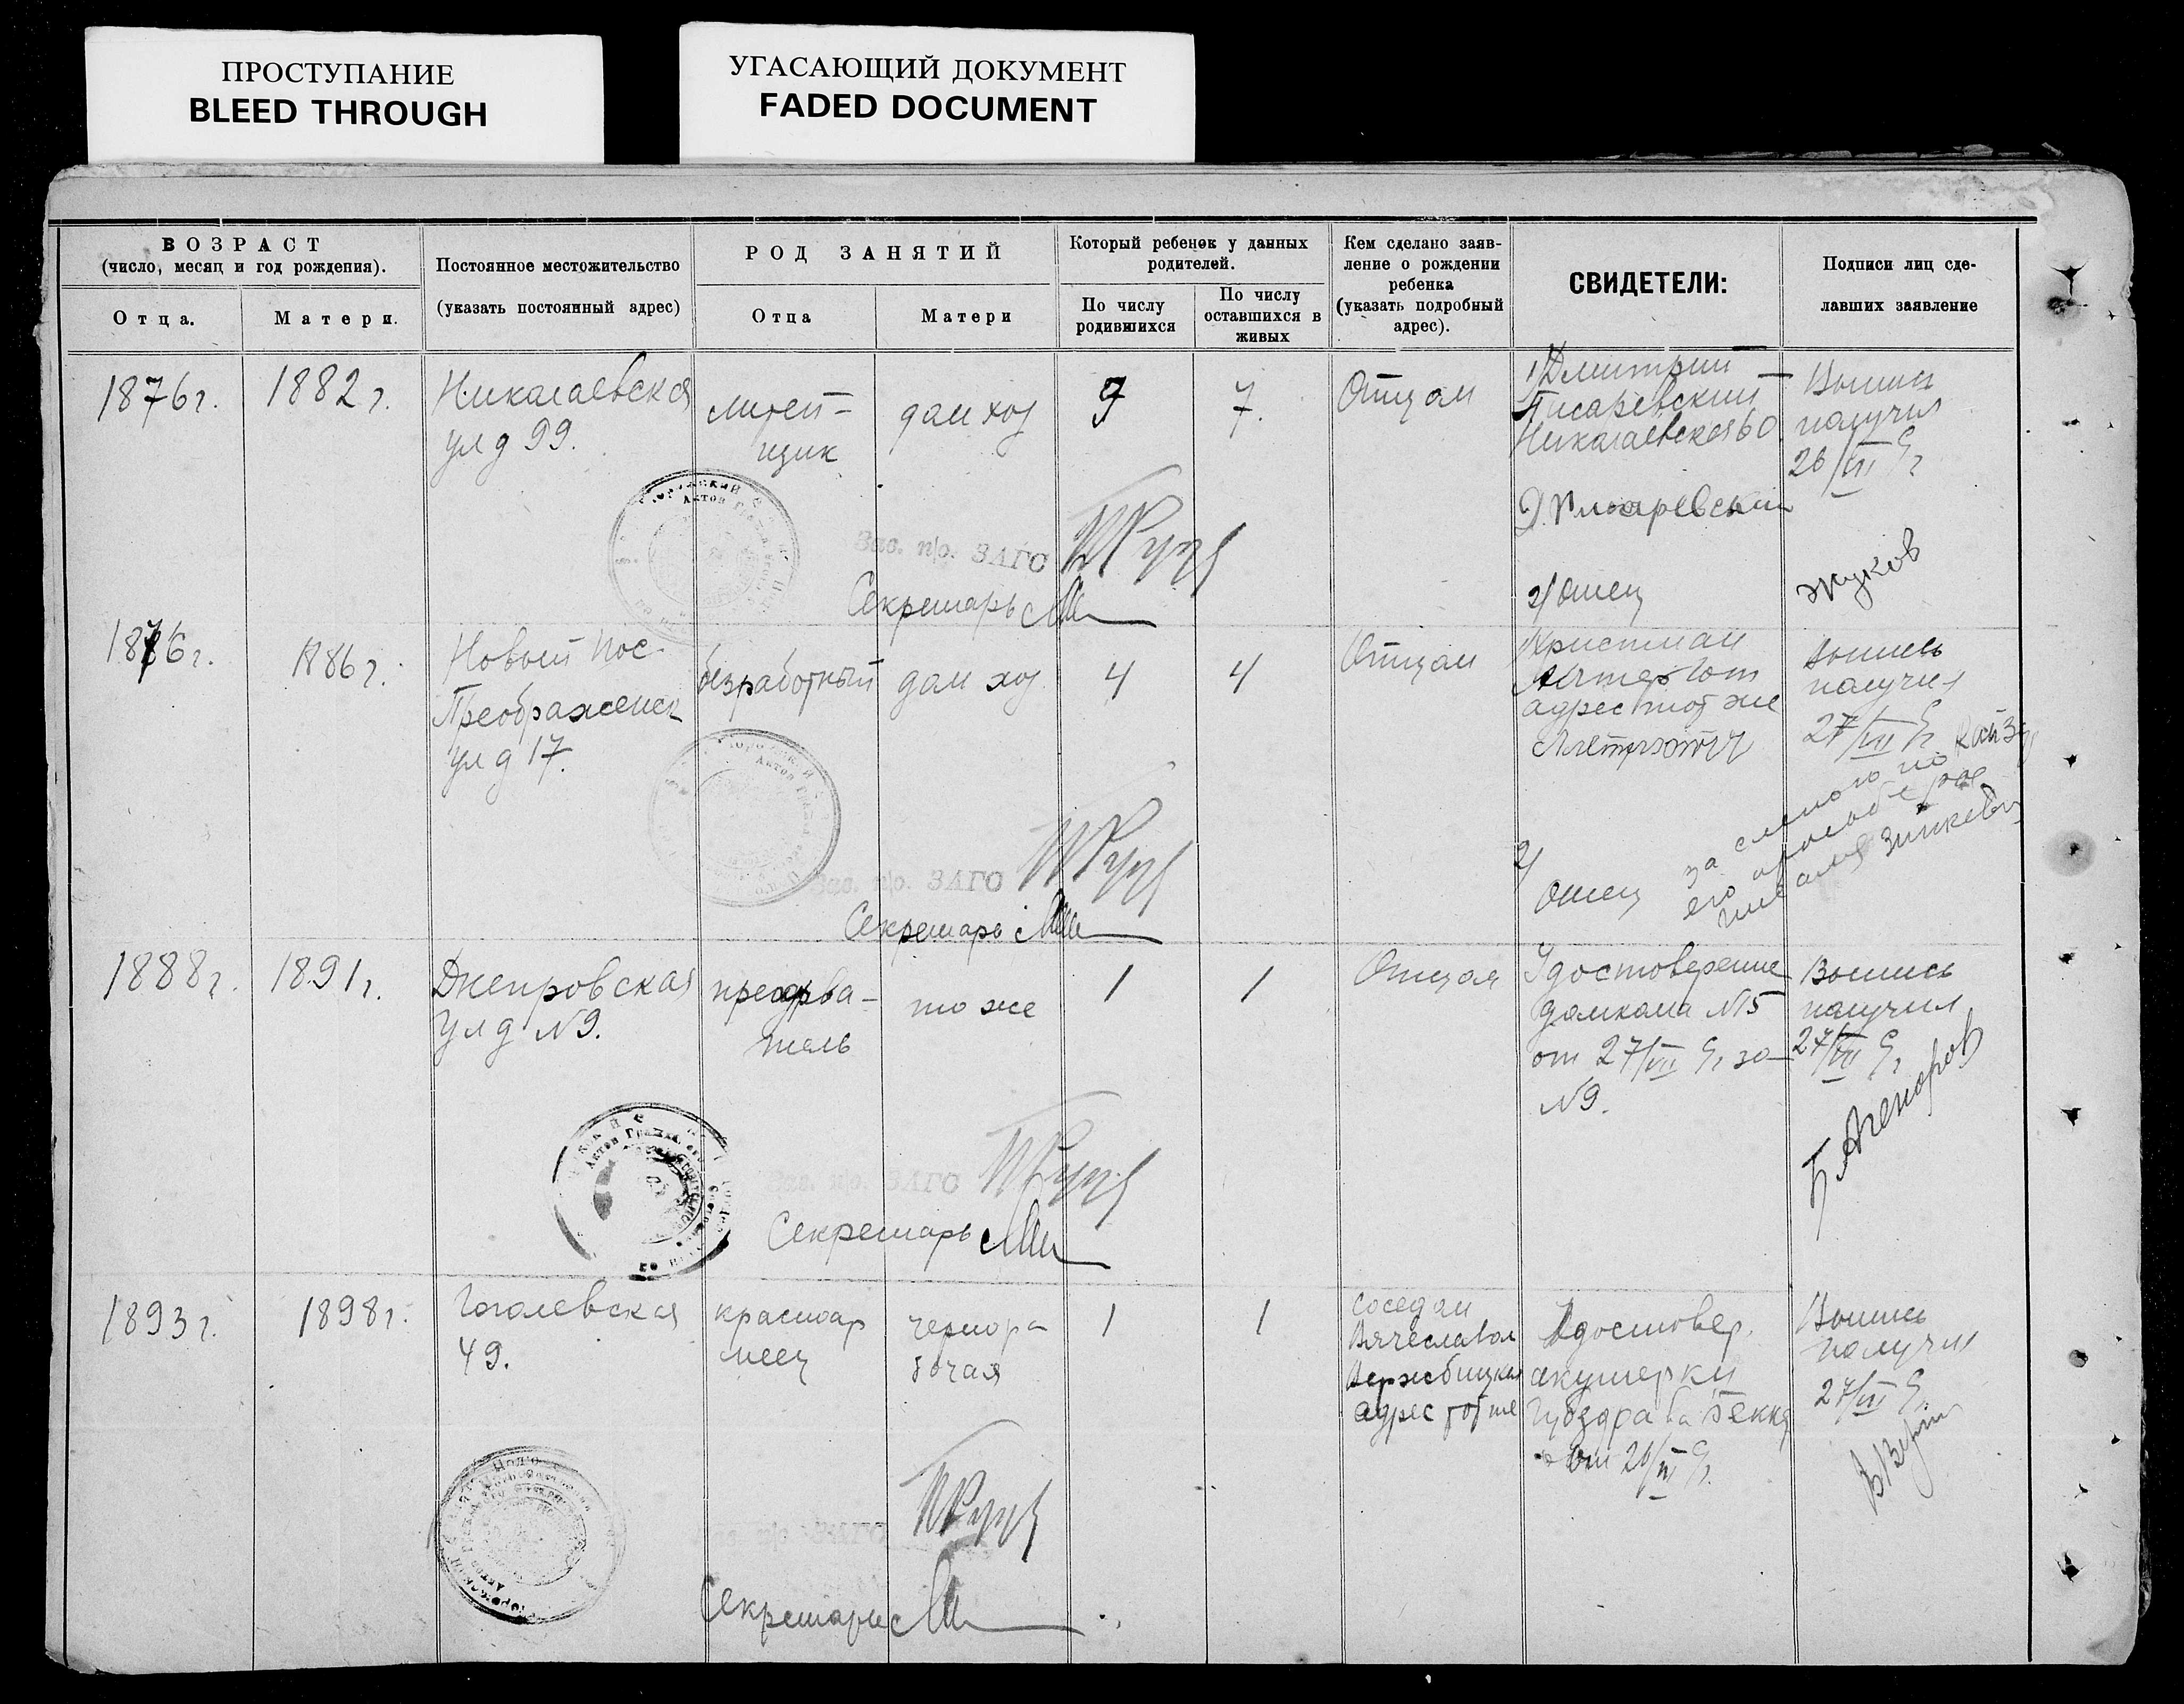 ПРОСТУПАНИЕ
BLEED THROUGH
УГАСАЮЩИЙ ДОКУМЕНТ
FADED DOCUMENT
ВОЗРАСТ
(число, месяц и год рождения).
Отца.
Матери.
Постоянное местожительство
(указать постоянный адрес)
РОД ЗАНЯТИЙ
Отца
Матери
Который ребенок у данных
родителей.
По числу
родившихся
По числу
оставшихся в
живых
Кем сделано заяв-
ление о рождении
ребенка
(указать подробный
адрес).
СВИДЕТЕЛИ:
Подписи лиц сде-
лавших заявление
1876г.
1882г.
Николаевская
ул д 99.
литей-
щик
дом хоз
9
7.
Отцом
1) Дмитрий
Писаревский
Николаевская 60
Д. Писаревский
2/ Отец
Выпись
получил
26/VII
Жуков
Зав. п/о. ЗАГС
Секретарь
1876г.
1886г.
Новый пос.
Преображенск
ул д 17.
безработный
дом хоз
4
4
Отцом
Христиан
адрес тот же
2/
Отец
Выпись
получил
27/VII
за слепого по
его просьбе рас
Зав. п/о. ЗАГС
Секретарь
1888г.
1891г.
Днепровская
ул д N9.
преподава-
тель
то же
1
1
Отцом
Удостоверение
домкома N15
от 27/VII за
N9.
Выпись
получил
27/VII
Б. Агеноров
Зав. п/о. ЗАГС
Секретарь
1893г.
1898г.
Гоголевская
49.
красноар
меец
чернора
бочая
1
1
соседом
Вячеславом
Вержбицким
адрес тот же
Удостовер.
акушерки
Губздрава Бекке
от 26/VII
Выпись
получил
27/VII
ЗАГС
Секретарь